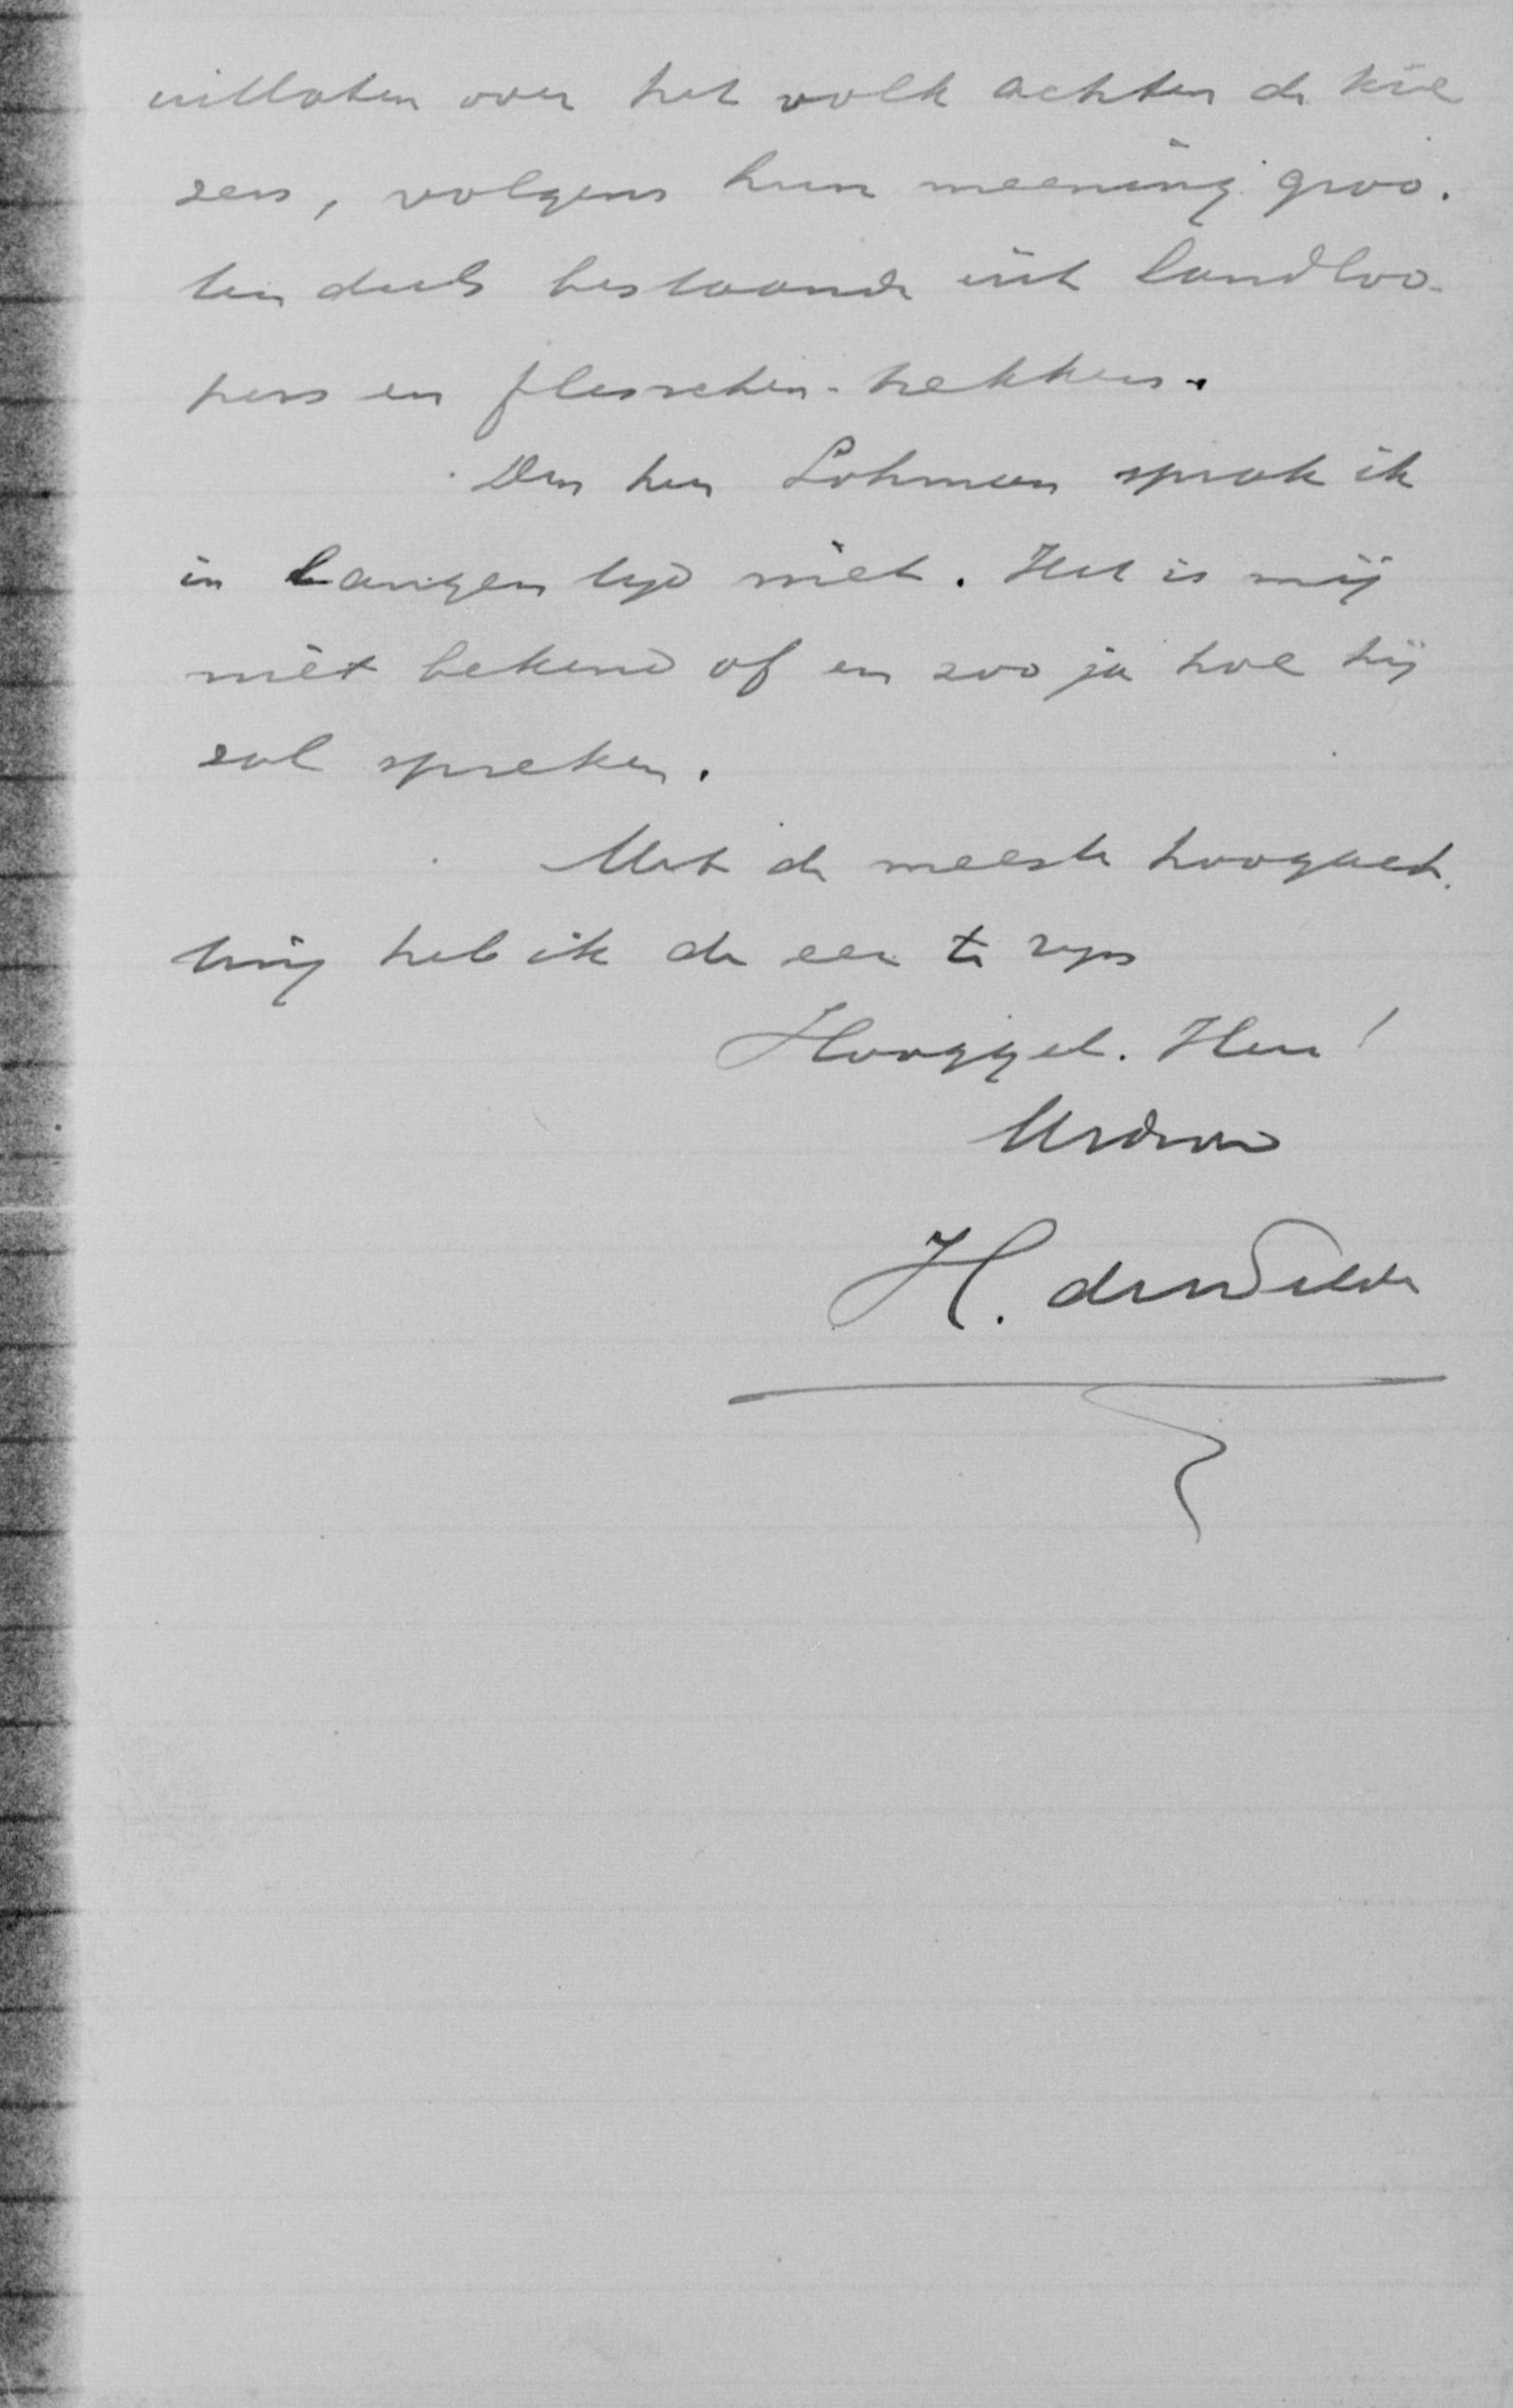 uitlaten over het volk achter de kie
zers, volgens hun meening groo-
tendeels bestaande uit landloo-
pers en flesschen-trekkers.
Den heer Lohman sprak ik
in langen tijd niet. Het is mij
niet bekend of en zoo ja hoe hij
zal spreken.
Met de meeste hoogach-
ting heb ik de eer te zijn
Hooggel. Heer!
Uwdnr
H. de Wilde